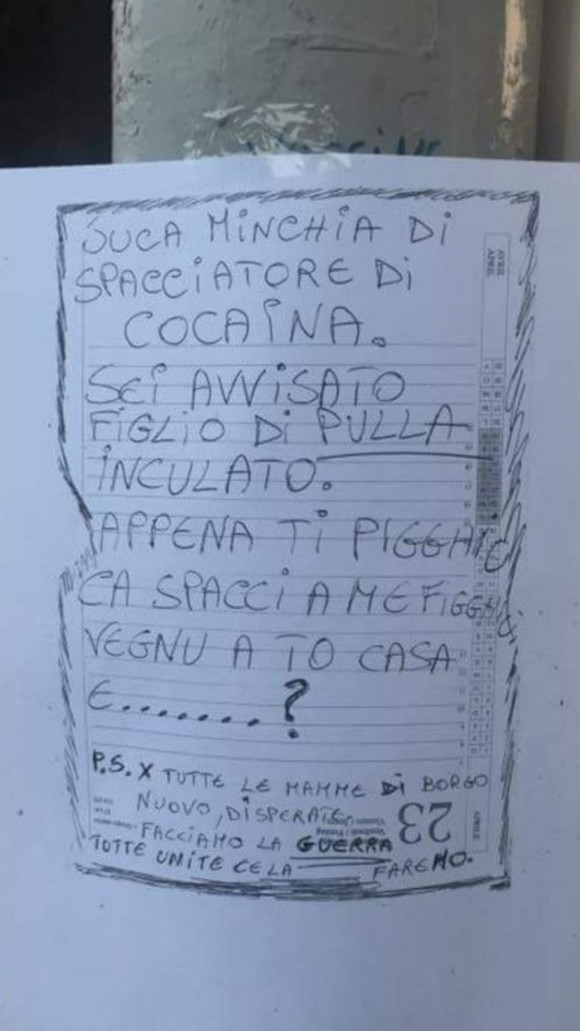 SUCA MINCHIA DI
SPACCIATORE DI
COCAINA.
SEI AVVISATO
FIGLIO DI PULLA
INCULATO.
APPENA TI PIGGHIO
CA SPACCI A ME FIGGHIO
VEGNU A TO CASA
E.......?
P.S. X TUTTE LE MAMME DI BORGO
NUOVO, DISPERATE
FACCIAMO LA GUERRA
TUTTE UNITE CE LA FAREMO.
23
APRILE
APRIL